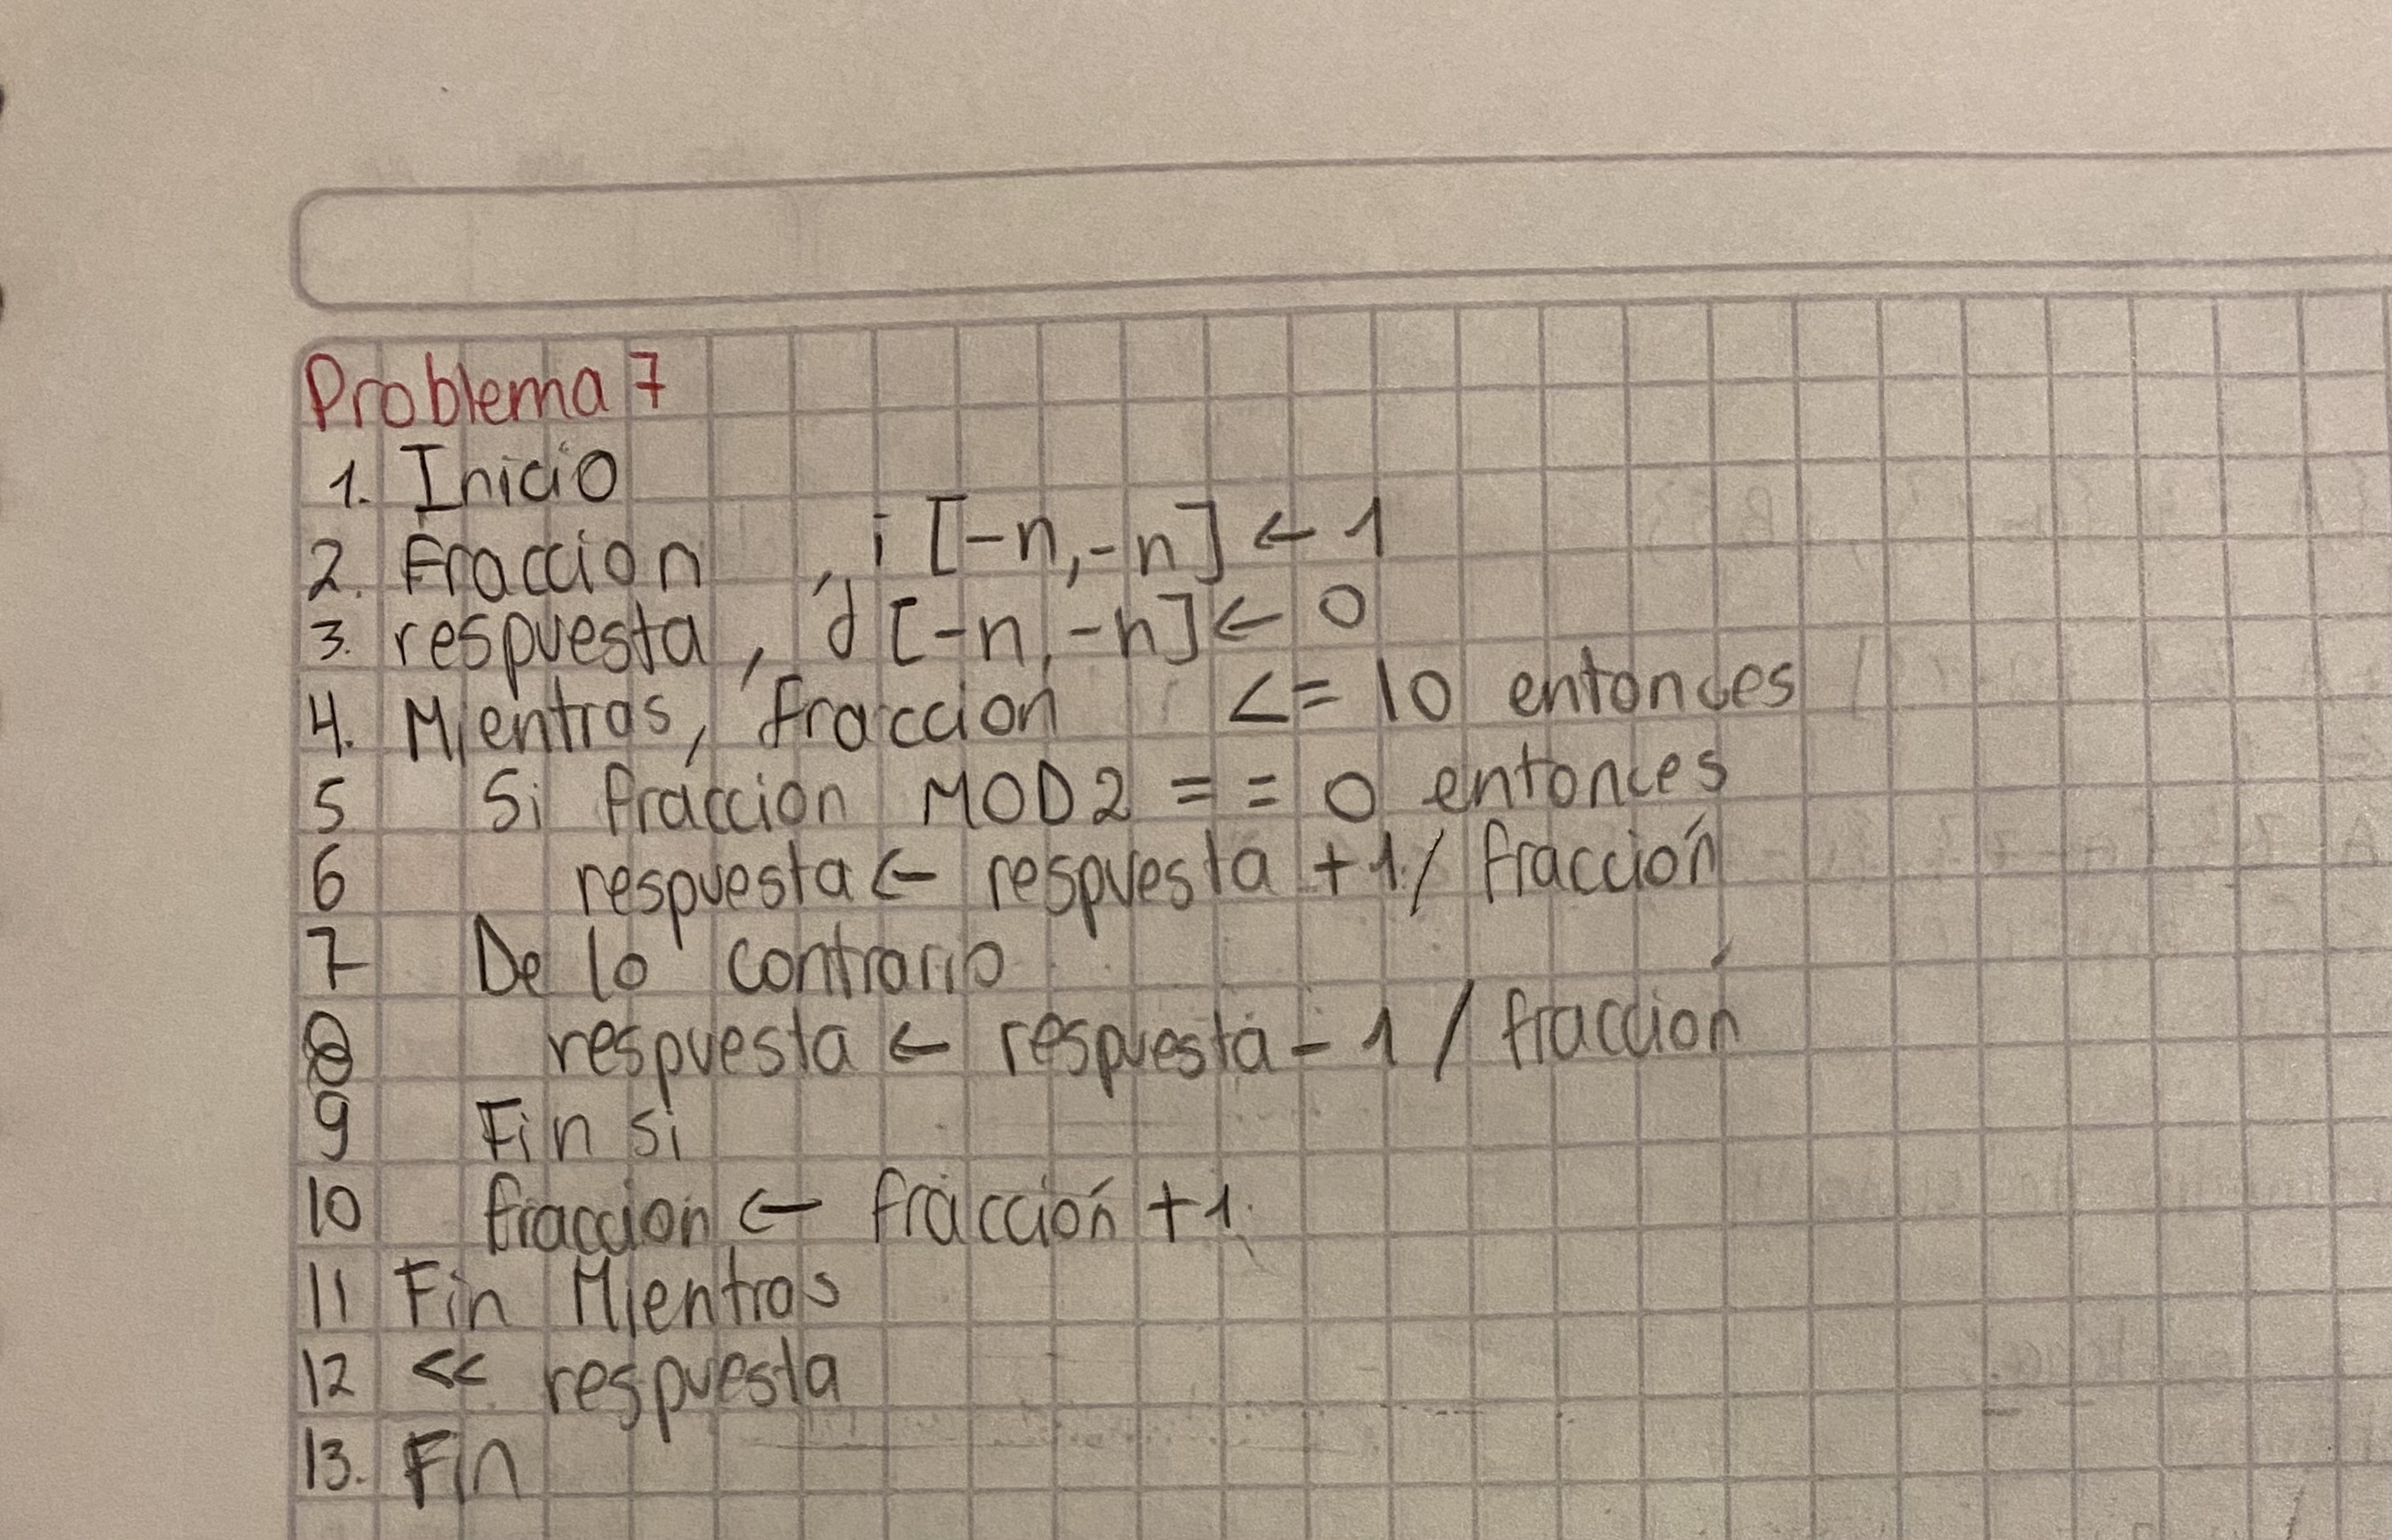 Problema 7
1. Inicio
2. Fraccion , i [-n,-n] ← 1
3. respuesta, d [-n,-n] ← 0
4. Mientras, fraccion <= 10 entonces
5 Si fraccion MOD2 = = 0 entonces
6 respuesta ← respuesta + 1 / fracción
7 De lo contrario
8 respuesta ← respuesta - 1 / fracción
9 Fin si
10 fraccion ← fracción + 1
11 Fin Mientras
12 << respuesta
13. Fin